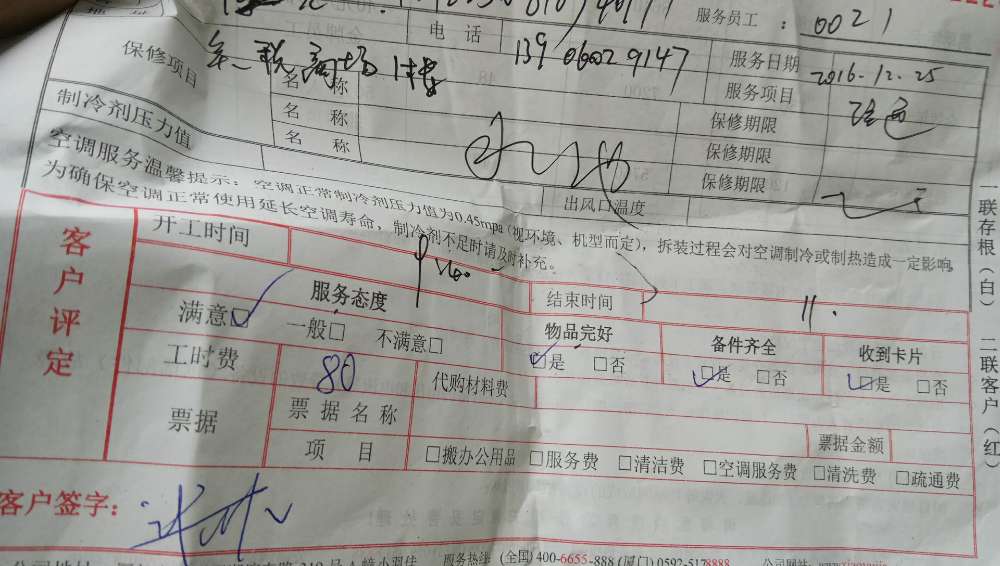 地址
电话
服务员工：0021
保修项目
13906029147
服务日期 2016.12.25
名称
服务项目
名称
保修期限
名称
保修期限
保修期限
制冷剂压力值
出风口温度
空调服务温馨提示：空调正常制冷剂压力值为0.45mpa（视环境、机型而定），拆装过程会对空调制冷或制热造成一定影响，
为确保空调正常使用延长空调寿命，制冷剂不足时请及时补充。
客户评定
开工时间
结束时间 11.
服务态度
物品完好
备件齐全
收到卡片
满意☑ 一般□ 不满意□
☑是 □否
☑是 □否
☑是 □否
工时费 80 代购材料费
票据
票据名称
票据金额
项目 □搬办公用品 □服务费 □清洁费 □空调服务费 □清洗费 □疏通费
客户签字：
服务热线 (全国)400-6655-888 (厦门)0592-5178888
一联存根（白） 二联客户（红）